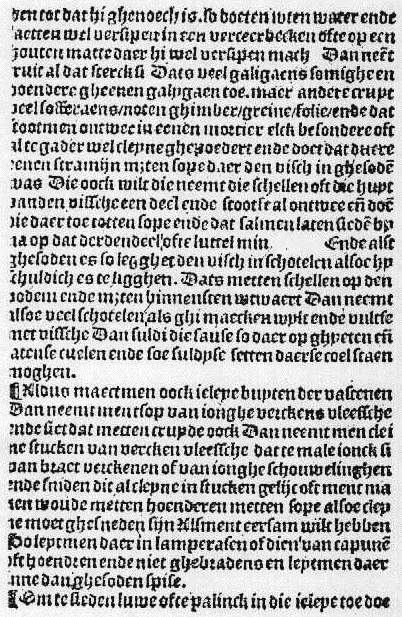 ven tot dat hi ghenoech is. so doetten wten water ende
laetten wel versipen in een verteerbecken ofte op een
houten matte daer hi wel versipen mach Dan neēt
cruit al dat sterck si Dats veel galigaens somighe en
doendere gheenen galygaen toe. maer andere crupt
veel soffraens/noten ghimber/greine/folie/ende dat
stootmen ontwee in eenen mortier elck besondere oft
al te gader wel cleyne ghepoedert ende doet dat duere
eenen stramijn mztten sope daer den visch in ghesodē
was Die oock wilt die neemt die schellen oft die huyt
vanden vissche een deel ende stootse al ontwee eñ doē
die daer toe totten sope ende dat salmen laten siedē by
na op dat derdendeel ofte luttel min. Ende alst
ghesoden es so legghet den visch in schotelen alsoe hy
schuldich es te ligghen. Dats metten schellen op den
bodem ende mztten binnensten wtwaert Dan neemt
alsoe veel schotelen als ghi maecken wylt ende vultse
met vissche Dan suldi die sause so daer op ghyeten eñ
latense cuelen ende soe suldyse setten daerse coel staen
moghen.
¶Aldus maectmen oock ielepe buyten der vastenen
Dan neemt men tsop van ionghe verckens vleessche
ende siet dat metten crupde oock Dan neemt men clei
ne stucken van vercken vleessche dat te male ionck si
van braet verckenen of van ionghe schouwelinghen
ende sniden dit al cleyne in stucken gelijc oft ment ma
ken woude metten hoenderen metten sope alsoe cley
ne moet ghesneden sijn Alsment eersam wilt hebben
So leytmen daer in lamperasen of dien van capunē
oft hoendren ende niet ghebradens en leytmen daer
inne dan ghesoden spise.
¶Om te sieden luwe ofte palinck in die ielepe toe doe